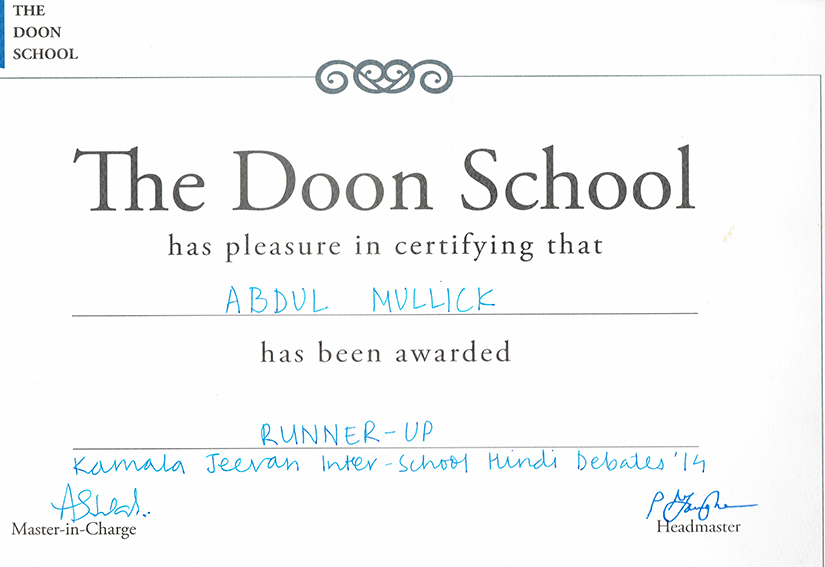 THE
DOON
SCHOOL
The Doon School
has pleasure in certifying that
ABDUL MULLICK
has been awarded
RUNNER-UP
Kamala Jeevan Inter-School Hindi Debates '14
Master-in-Charge
Headmaster